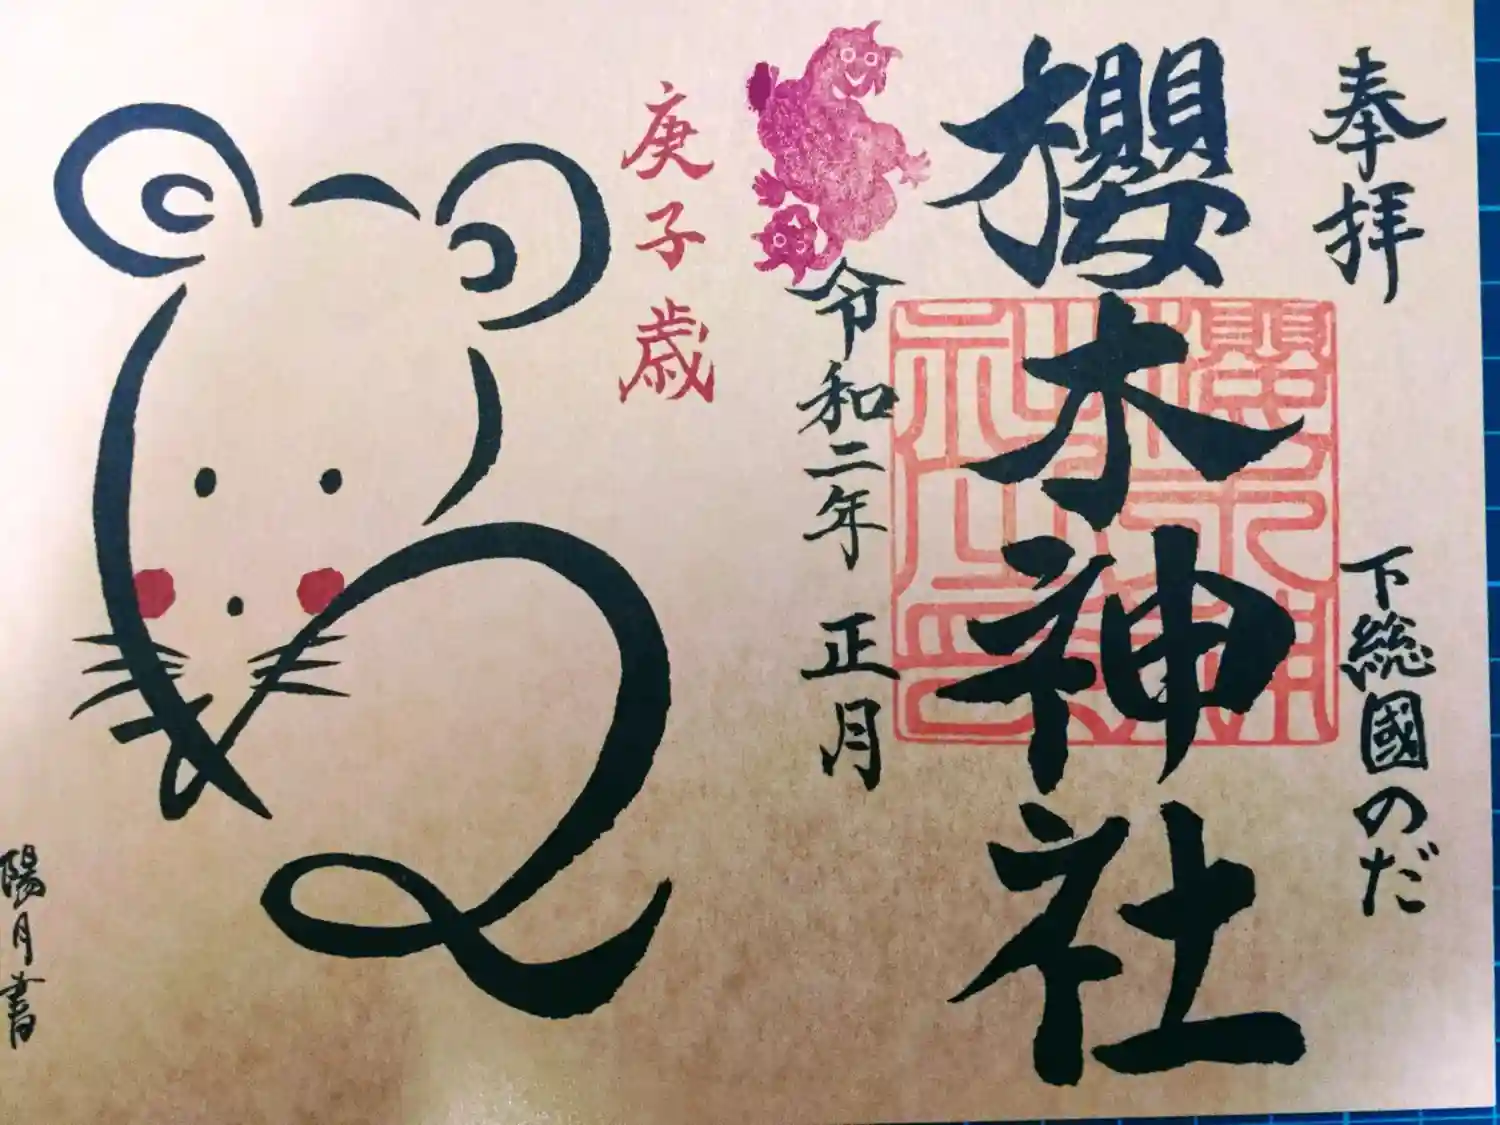 奉拝
下総國のだ
櫻木神社
櫻木神社之印
令和二年 正月
庚子歳
陽月書